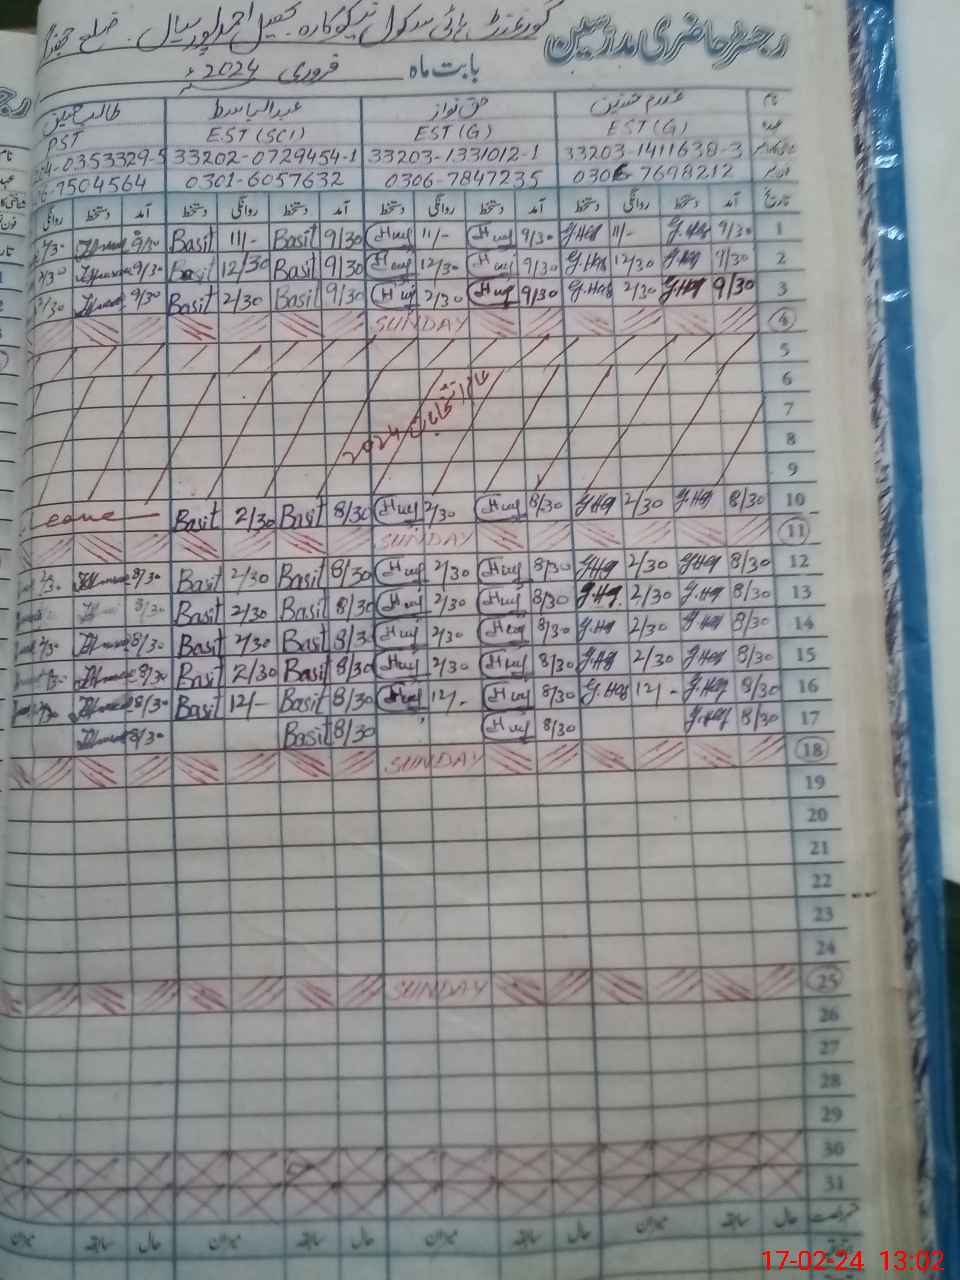 رجسٹر حاضری مدرسین گورنمنٹ ہائی سکول کوکارہ تحصیل احمد پور سیال ضلع جھنگ
بابت ماہ فروری 2024ء
نام حق نواز عبدالباسط طالب حسین
عہدہ EST (G) EST (G) EST (SCI) PST
33203-1411638-3 33203-1331012-1 33202-0729454-1 0353329-5
0306-7698212 0306-7847235 0301-6057632 7504564
تاریخ آمد دستخط روانگی دستخط آمد دستخط روانگی دستخط آمد دستخط روانگی دستخط آمد دستخط روانگی
1 9/30 G.Haq 11/- G.Haq 9/30 Huq 11/- Huq 9/30 Basit 11/- Basit 9/30
2 9/30 G.Haq 12/30 G.Haq 9/30 Huq 12/30 Huq 9/30 Basit 12/30 Basit 9/30 2/30
3 9/30 G.Haq 2/30 G.Haq 9/30 Huq 2/30 Huq 9/30 Basit 2/30 Basit 9/30 2/30
4 SUNDAY
5
6
7 عام انتخابات 2024
8
9
10 8/30 G.Haq 2/30 G.Haq 8/30 Huq 2/30 Huq 8/30 Basit 2/30 Basit
11 SUNDAY
12 8/30 G.Haq 2/30 G.Haq 8/30 Huq 2/30 Huq 8/30 Basit 2/30 Basit 8/30 2/30
13 8/30 G.Haq 2/30 G.Haq 8/30 Huq 2/30 Huq 8/30 Basit 2/30 Basit 8/30
14 8/30 G.Haq 2/30 G.Haq 8/30 Huq 2/30 Huq 8/30 Basit 2/30 Basit 8/30 2/30
15 8/30 G.Haq 2/30 G.Haq 8/30 Huq 2/30 Huq 8/30 Basit 2/30 Basit 8/30
16 8/30 G.Haq 12/- G.Haq 8/30 Huq 12/- Huq 8/30 Basit 12/- Basit 8/30
17 8/30 G.Haq 8/30 Huq 8/30 Basit 8/30
18 SUNDAY
19
20
21
22
23
24
25 SUNDAY
26
27
28
29
30
31
حال سابقہ میزان حال سابقہ میزان حال سابقہ میزان حال سابقہ میزان
17-02-24 13:02